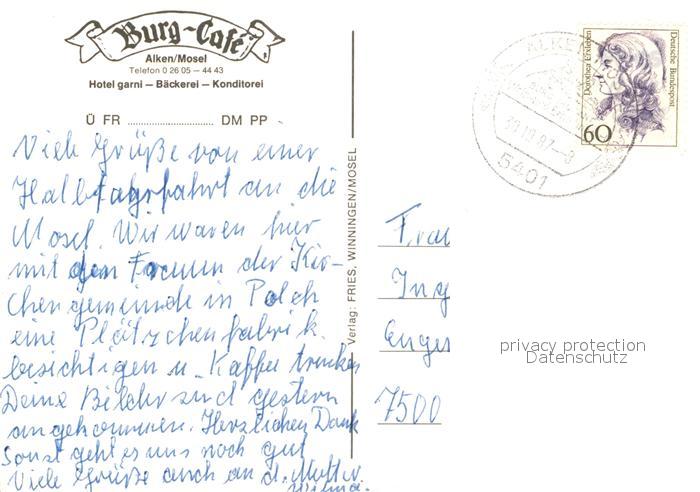 Burg-Café
Alken/Mosel
Telefon 0 26 05 — 44 43
Hotel garni — Bäckerei — Konditorei
Ü FR ........................ DM PP
Viele Grüße von einer
Halbtagsfahrt an die
Mosel. Wir waren hier
mit den Frauen der Kir-
chengemeinde in Polch
eine Plätzchenfabrik
besichtigen u. Kaffee trinken
Deine Bilder sind gestern
angekommen. Herzlichen Dank
Sonst geht es uns noch gut
Viele Grüße auch an d. Mutter
Verlag: FRIES, WINNINGEN/MOSEL
ALKEN
30.10.87-8
5401
Dorothea Erxleben
Deutsche Bundespost
60
Frau
Ing
Enges
7500
privacy protection
Datenschutz